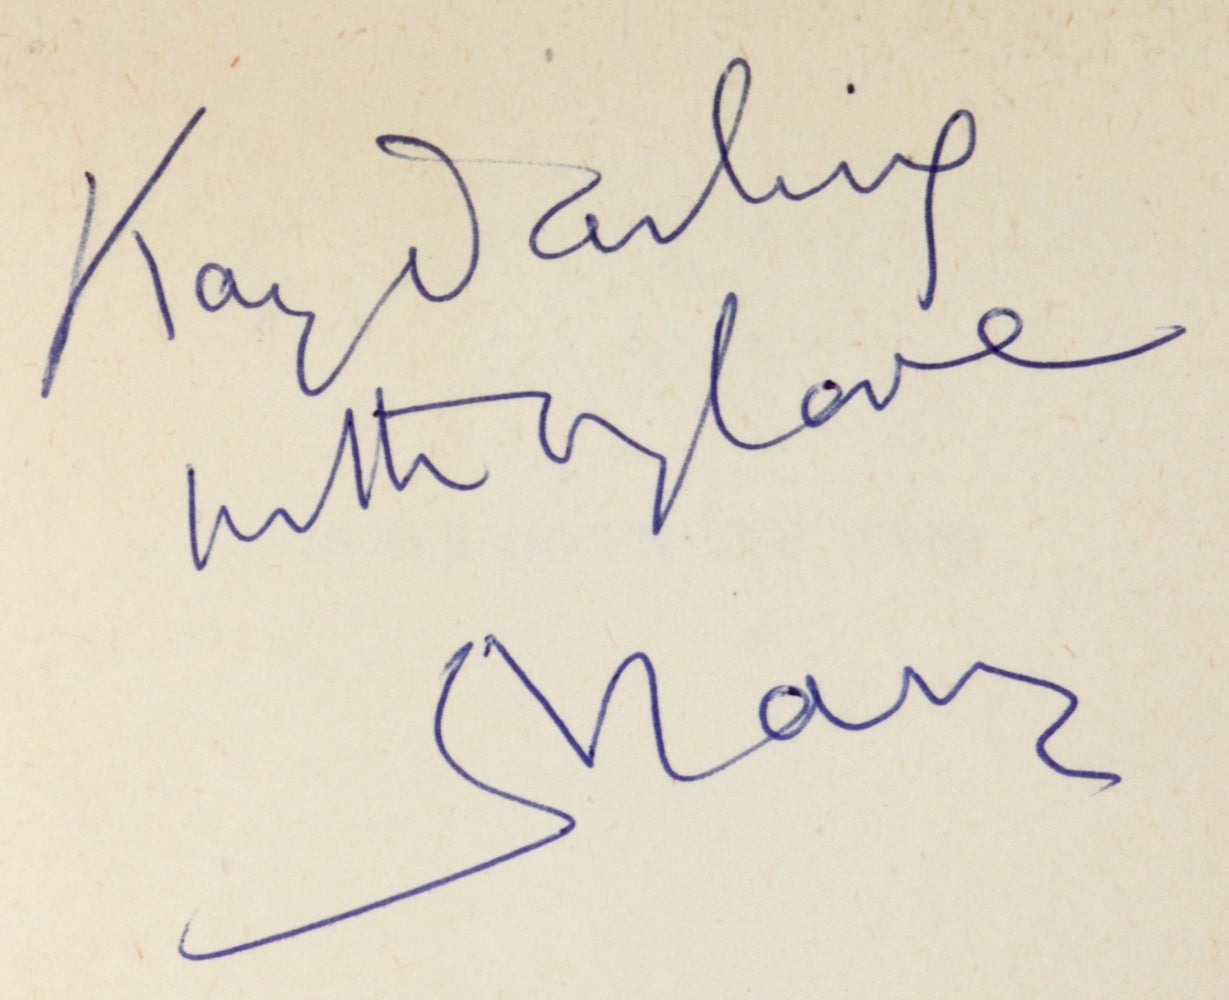 Kay Darling
with my love
Mary